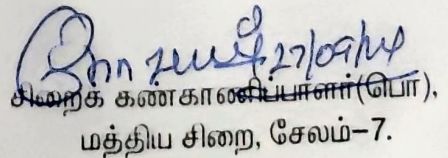 27/09/24
சிறைக் கண்காணிப்பாளர்(பொ),
மத்திய சிறை, சேலம்-7.